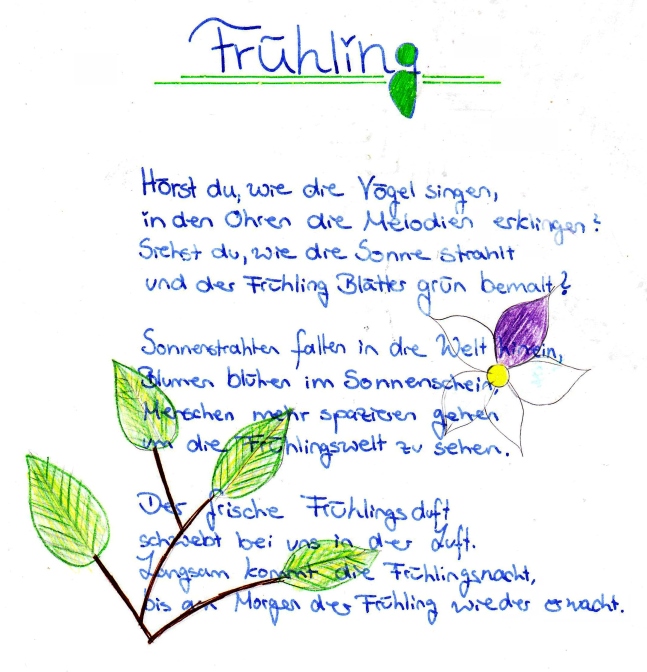 Frühling
Hörst du, wie die Vögel singen,
in den Ohren die Melodien erklingen?
Siehst du, wie die Sonne strahlt
und der Frühling Blätter grün bemalt?
Sonnenstrahlen fallen in die Welt hinein,
Blumen blühen im Sonnenschein,
Menschen mehr spazieren gehen
um die Frühlingswelt zu sehen.
Der frische Frühlingsduft
schwebt bei uns in der Luft.
Langsam kommt die Frühlingsnacht,
bis am Morgen der Frühling wieder erwacht.